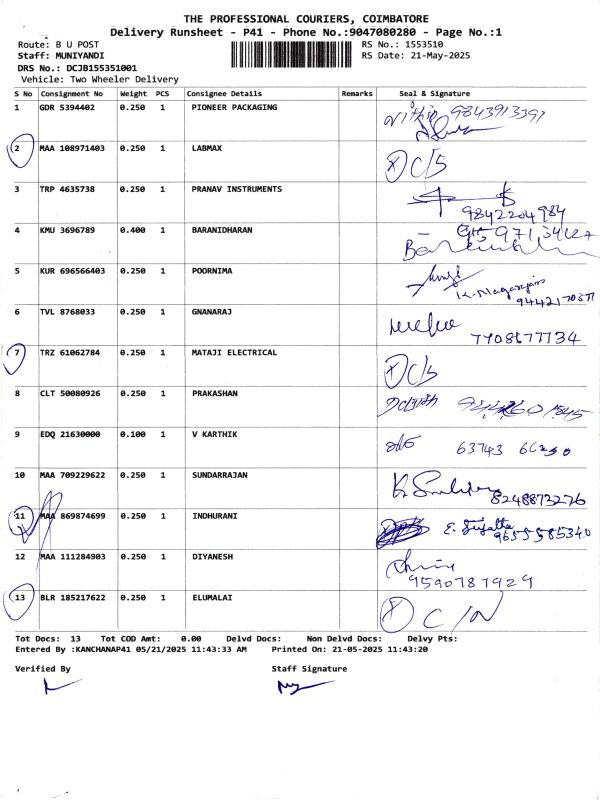 THE PROFESSIONAL COURIERS, COIMBATORE
Delivery Runsheet - P41 - Phone No.:9047080280 - Page No.:1
Route: B U POST RS No.: 1553510
Staff: MUNIYANDI RS Date: 21-May-2025
DRS No.: DCJB155351001
Vehicle: Two Wheeler Delivery
S No Consignment No Weight PCS Consignee Details Remarks Seal & Signature
1 GDR 5394402 0.250 1 PIONEER PACKAGING 9843913391
2 MAA 108971403 0.250 1 LABMAX D/S
3 TRP 4635738 0.250 1 PRANAV INSTRUMENTS 9842204984
4 KMU 3696789 0.400 1 BARANIDHARAN
5 KUR 696566403 0.250 1 POORNIMA K. Nagarajan
6 TVL 8768033 0.250 1 GNANARAJ 7708677734
7 TRZ 61062784 0.250 1 MATAJI ELECTRICAL D/S
8 CLT 50080926 0.250 1 PRAKASHAN
9 EDQ 21630000 0.100 1 V KARTHIK 63743
10 MAA 709229622 0.250 1 SUNDARRAJAN 8248873276
11 MAA 869874699 0.250 1 INDHURANI 9655585340
12 MAA 111284903 0.250 1 DIYANESH 9590787929
13 BLR 185217622 0.250 1 ELUMALAI C/N
Tot Docs: 13 Tot COD Amt: 0.00 Delvd Docs: Non Delvd Docs: Delvy Pts:
Entered By :KANCHANAP41 05/21/2025 11:43:33 AM Printed On: 21-05-2025 11:43:20
Verified By Staff Signature